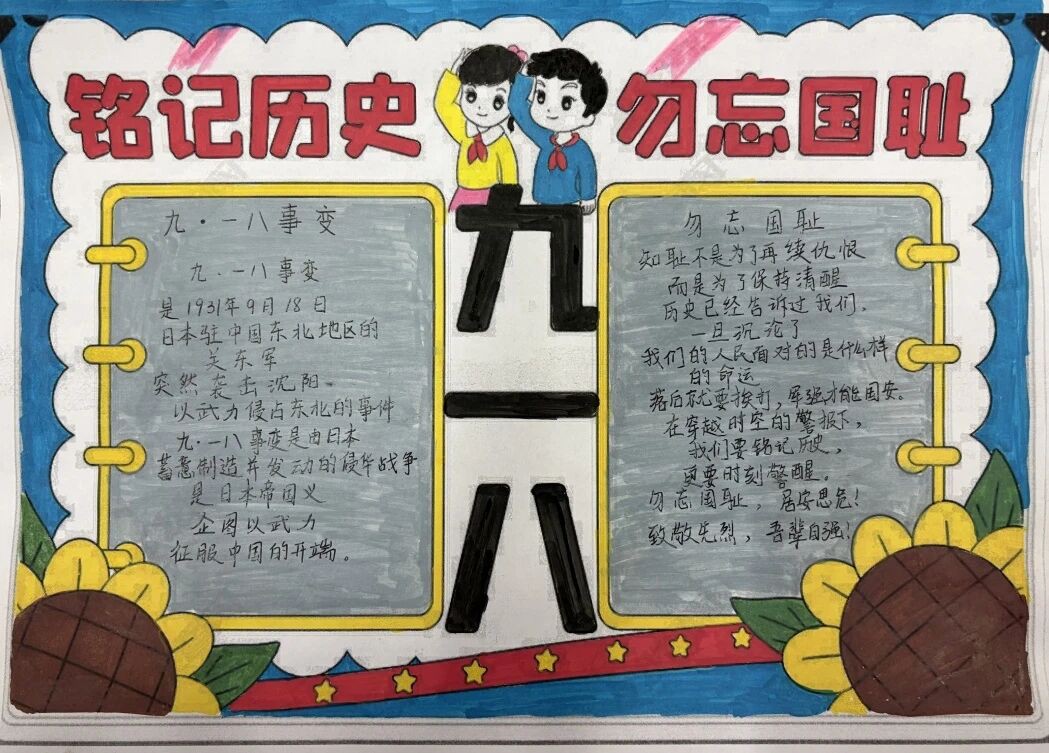 铭记历史
勿忘国耻
九·一八事变
九·一八事变
是1931年9月18日
日本驻中国东北地区的
关东军
突然袭击沈阳。
以武力侵占东北的事件
九·一八事变是由日本
蓄意制造并发动的侵华战争
是日本帝国义
企图以武力
征服中国的开端。
九一八
勿忘国耻
知耻不是为了再续仇恨
而是为了保持清醒
历史已经告诉过我们,
一旦沉沦了
我们的人民面对的是什么样
的命运
落后就要挨打,军强才能国安。
在穿越时空的警报下,
我们要铭记历史,
更要时刻警醒。
勿忘国耻,居安思危!
致敬先烈,吾辈自强!